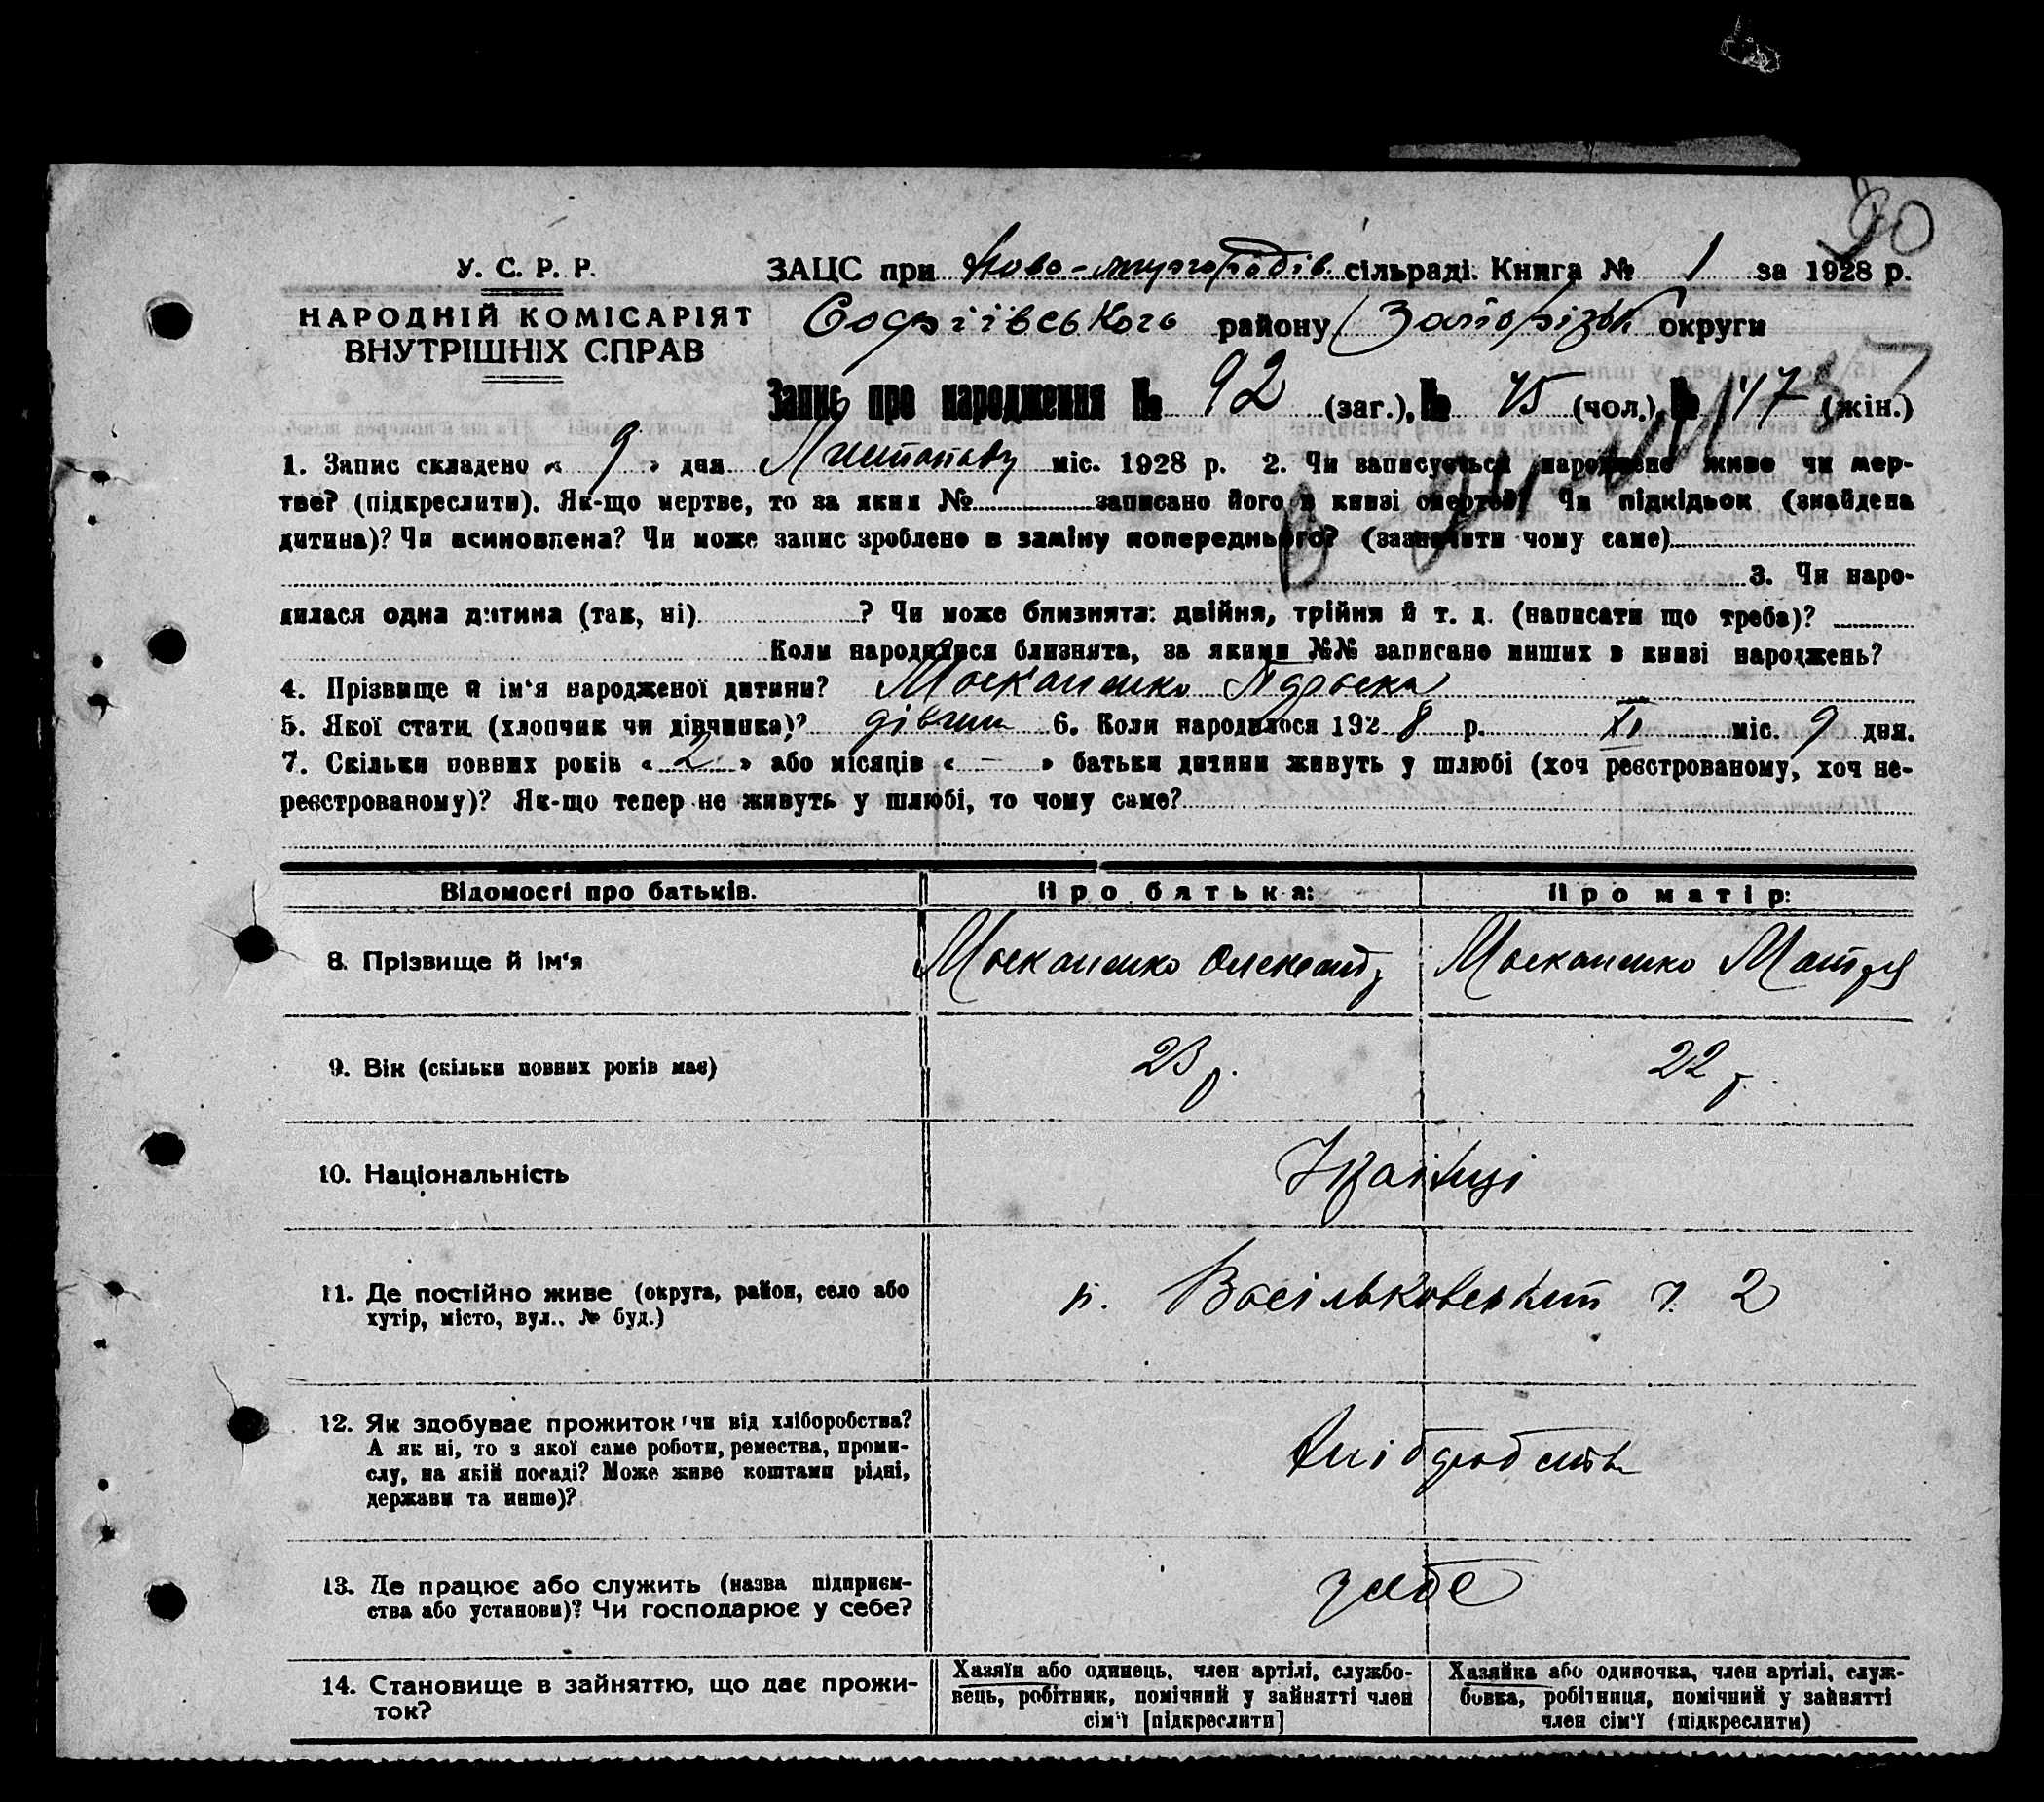 90
У. С. Р. Р.
НАРОДНІЙ КОМІСАРІЯТ
ВНУТРІШНІХ СПРАВ
ЗАЦС при Ново- сільраді. Книга № 1 за 1928 р.
Софіївського району Запорізьк округи
Запис про народження № 92 (заг.), № 45 (чол.), № 47 (жін.)
1. Запис складено « 9 » дня Листопаду міс. 1928 р. 2. Чи записується народжене живе чи мер-
тве? (підкреслити). Як-що мертве, то за яким № записано його в книзі смертей? Чи підкідьок (знайдена
дитина)? Чи всиновлена? Чи може запис зроблено в заміну попереднього? (зазначити чому саме)
3. Чи наро-
дилася одна дитина (так, ні) ? Чи може близнята: двійня, трійня й т. д. (написати що треба)?
Коли народилися близнята, за якими №№ записано инших в книзі народжень?
4. Прізвище й ім‘я народженої дитини? Москаленко
5. Якої стати (хлопчик чи дівчинка)? дівчин 6. Коли народилося 1928 р. XI міс. 9 дня.
7. Скільки повних років « 2 » або місяців « - » батьки дитини живуть у шлюбі (хоч реєстрованому, хоч не-
реєстрованому)? Як-що тепер не живуть у шлюбі, то чому саме?
Відомості про батьків.
Про батька:
Про матір:
8. Прізвище й ім‘я
Москаленко Олександр
Москаленко Мотря
9. Вік (скільки повних років має)
23 р.
22 р.
10. Національність
Українці
11. Де постійно живе (округа, район, село або
хутір, місто, вул., № буд.)
Васільковський ч. 2
12. Як здобуває прожиток чи від хліборобства?
А як ні, то з якої саме роботи, ремества, проми-
слу, на якій посаді? Може живе коштами рідні,
держави та инше)?
Хліборобств
13. Де працює або служить (назва підприєм-
ства або установи)? Чи господарює у себе?
у себе
14. Становище в зайняттю, що дає прожи-
ток?
Хазяїн або одинець, член артілі, службо-
вець, робітник, помічний у зайнятті член
сім‘ї [підкреслити]
Хазяйка або одиночка, член артілі, служ-
бовка, робітниця, помічний у зайнятті
член сім‘ї (підкреслити)